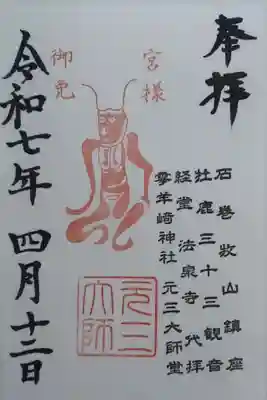 奉拝
宮様
御免
石巻牧山鎮座
牡鹿三十三観音
経堂 法泉寺 代拝
零羊﨑神社 元三大師堂
令和七年 四月十二日
元三大師